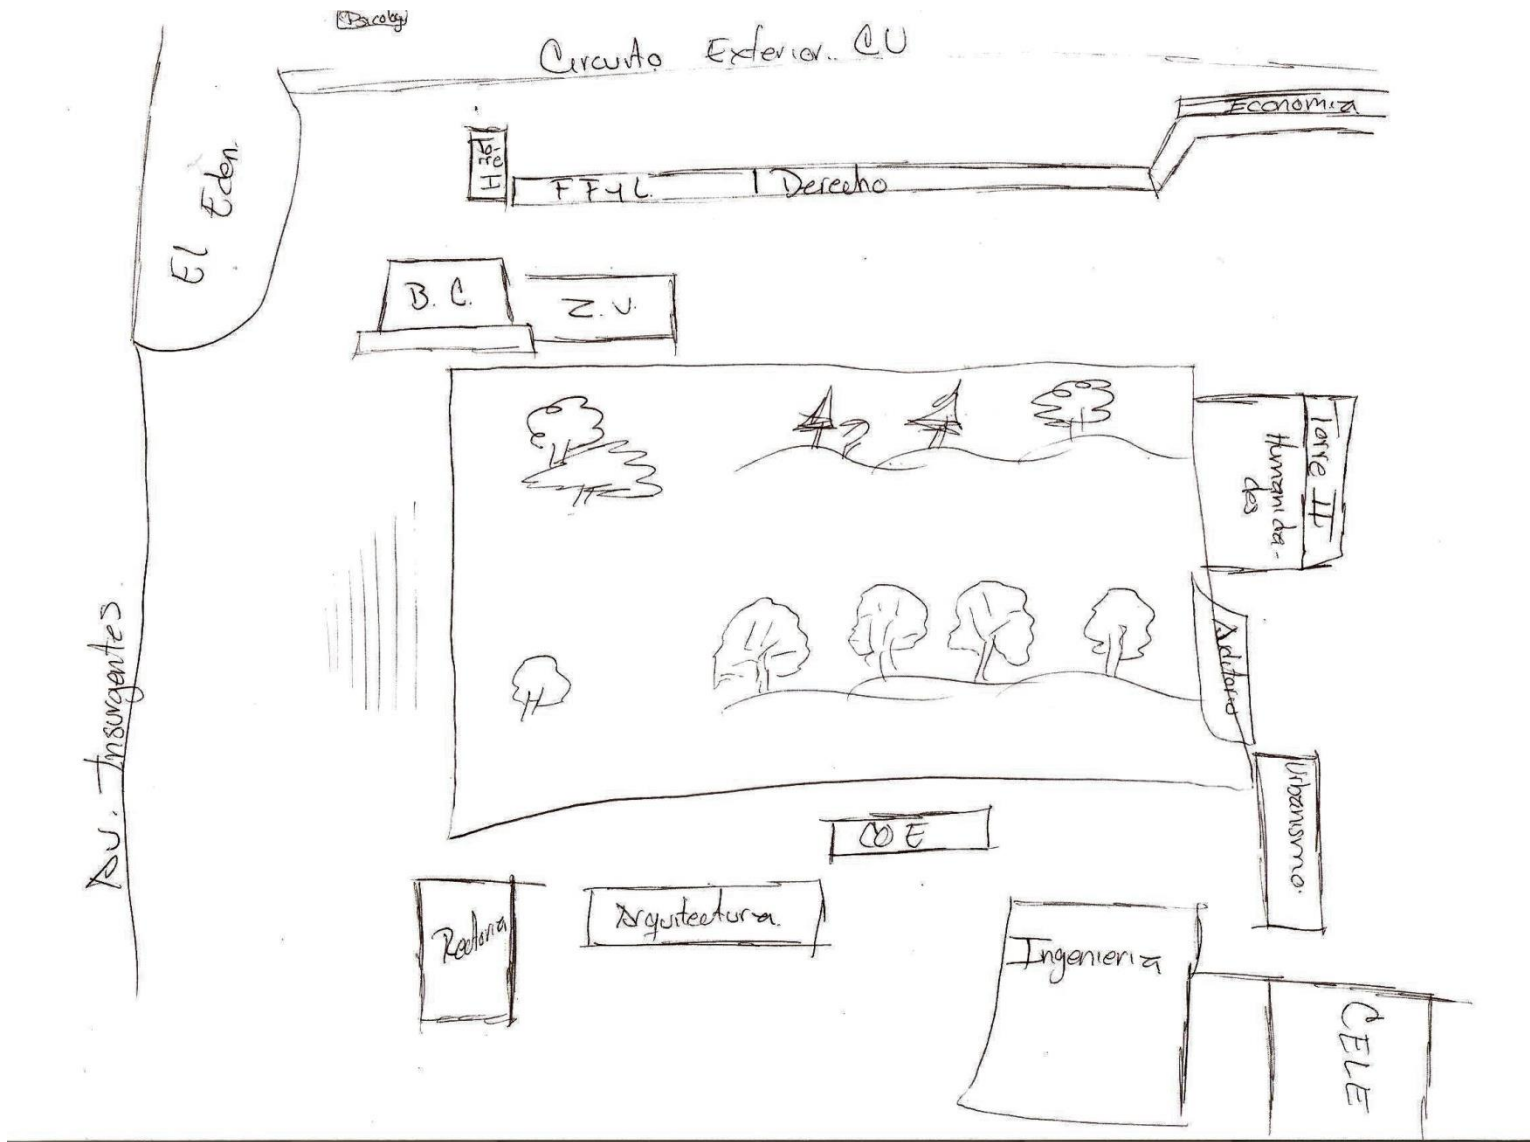 Psicologi
Circuito Exterior.. CU
Economia
Torre
H
FFyL
Derecho
El Eden.
B. C.
Z. U.
Torre II
Humanida-
des
Aditorio
Urbanismo.
Av. Insurgentes
CO E
Rectoria
Arquitectura.
Ingenieria
CELE